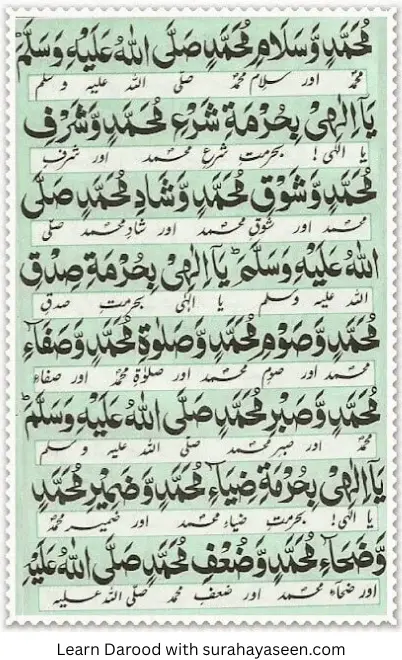 مُحَمَّدٍ وَّسَلَامِ مُحَمَّدٍ صَلَّى اللهُ عَلَيْهِ وَسَلَّمَ
محمدؐ اور سلام محمدؐ صلی اللہ علیہ وسلم
يَآ اِلٰهِىْ بِحُرْمَةِ شَرْعِ مُحَمَّدٍ وَّشَرْفِ
یا الٰہی! بحرمتِ شرعِ محمد اور شرفِ
مُحَمَّدٍ وَّشَوْقِ مُحَمَّدٍ وَّشَادِ مُحَمَّدٍ صَلَّى
محمد اور شوقِ محمد اور شادِ محمد صلی
اللهُ عَلَيْهِ وَسَلَّمَ ؕ يَآ اِلٰهِىْ بِحُرْمَةِ صِدْقِ
اللہ علیہ وسلم یا الٰہی بحرمتِ صدقِ
مُحَمَّدٍ وَّصَوْمِ مُحَمَّدٍ وَّصَلٰوةِ مُحَمَّدٍ وَّصَفَآءِ
محمد اور صومِ محمد اور صلوٰۃِ محمدؐ اور صفاءِ
مُحَمَّدٍ وَّصَبْرِ مُحَمَّدٍ صَلَّى اللهُ عَلَيْهِ وَسَلَّمَ ؕ
محمدؐ اور صبرِ محمد صلی اللہ علیہ وسلم
يَآ اِلٰهِىْ بِحُرْمَةِ ضِيَآءِ مُحَمَّدٍ وَّضَمِيْرِ مُحَمَّدٍ
یا الٰہی! بحرمتِ ضیاءِ محمد اور ضمیرِ محمدؐ
وَّضَحَآءِ مُحَمَّدٍ وَّضُعْفِ مُحَمَّدٍ صَلَّى اللهُ عَلَيْهِ
اور ضحاءِ محمد اور ضعفِ محمد صلی اللہ علیہ
Learn Darood with surahayaseen.com